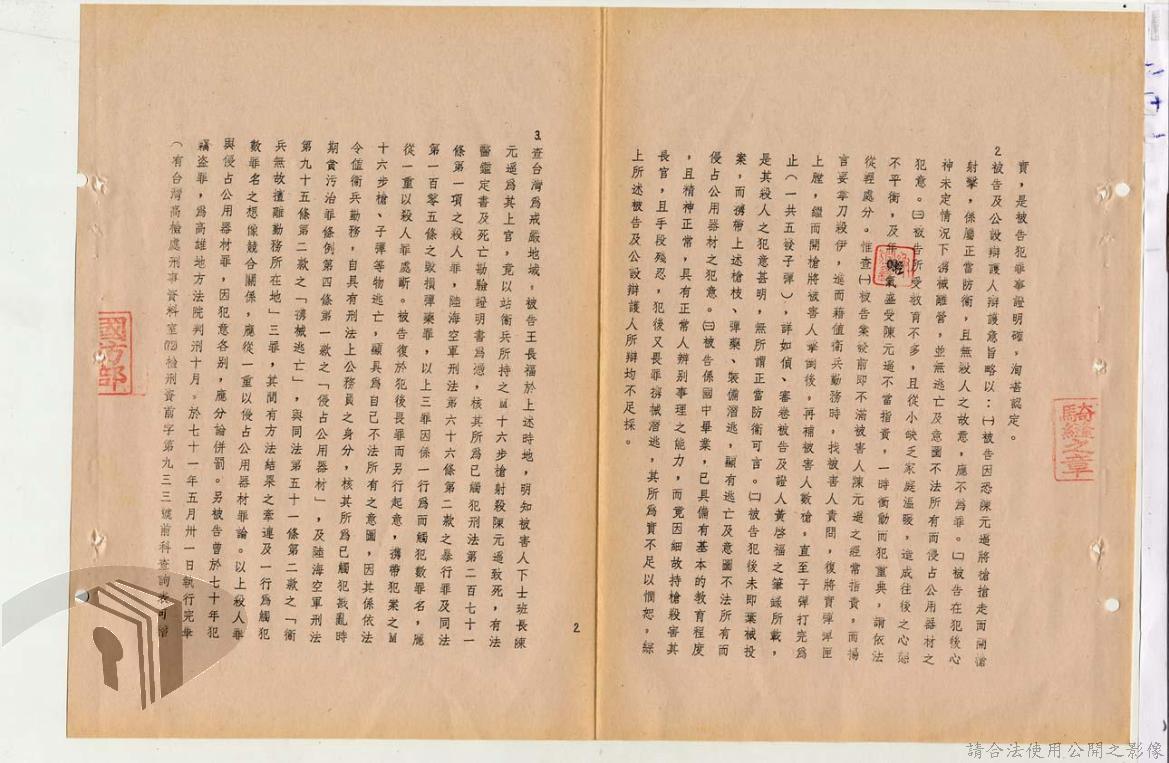 實，是被告犯罪事證明確，洵堪認定。
2.被告及公設辯護人辯護意旨略以：㈠被告因恐陳元遥將槍搶走而開槍
射擊，係屬正當防衛，且無殺人之故意，應不為罪。㈡被告在犯後心
神未定情況下携械離營，並無逃亡及意圖不法所有而侵占公用器材之
犯意。㈢被告所受教育不多，且從小缺乏家庭溫暖，造成往後之心態
不平衡，及年輕氣盛受陳元遥不當指責，一時衝動而犯重典，請依法
從輕處分。惟查㈠被告案發前即不滿被害人陳元遥之經常指責，而揚
言要拿刀殺伊，進而藉值衛兵勤務時，找被害人責問，復將實彈彈匣
上膛，繼而開槍將被害人擊倒後，再補被害人數槍，直至子彈打完為
止（一共五發子彈），詳如偵、審卷被告及證人黃啓福之筆錄所載，
是其殺人之犯意甚明，無所謂正當防衛可言。㈡被告犯後未即棄械投
案，而携帶上述槍枝、彈藥、裝備潛逃，顯有逃亡及意圖不法所有而
侵占公用器材之犯意。㈢被告係國中畢業，已具備有基本的教育程度
，且精神正常，具有正常人辨别事理之能力，而竟因細故持槍殺害其
長官，且手段殘忍，犯後又畏罪携械潛逃，其所為實不足以憫恕，綜
上所述被告及公設辯護人所辯均不足採。
2
3.查台灣為戒嚴地域，被告王長福於上述時地，明知被害人下士班長陳
元遥為其上官，竟以站衛兵所持之M十六步槍射殺陳元遥致死，有法
醫鑑定書及死亡勘驗證明書為憑，核其所為已觸犯刑法第二百七十一
條第一項之殺人罪，陸海空軍刑法第六十六條第二款之暴行罪及同法
第一百零五條之毀損彈藥罪，以上三罪因係一行為而觸犯數罪名，應
從一重以殺人罪處斷。被告復於犯後畏罪而另行起意，携帶犯案之M
十六步槍、子彈等物逃亡，顯具為自己不法所有之意圖，因其係依法
令值衛兵勤務，自具有刑法上公務員之身分，核其所為已觸犯戡亂時
期貪污治罪條例第四條第一款之「侵占公用器材」，及陸海空軍刑法
第九十五條第二款之「携械逃亡」，與同法第五十一條第二款之「衛
兵無故擅離勤務所在地」三罪，其間有方法結果之牽連及一行為觸犯
數罪名之想像競合關係，應從一重以侵占公用器材罪論。以上殺人罪
與侵占公用器材罪，因犯意各别，應分論併罰。另被告曾於七十年犯
竊盗罪，為高雄地方法院判刑十月，於七十一年五月卅一日執行完畢
（有台灣高檢處刑事資料室檢刑資前字第九三三號前科查詢表可稽
騎縫之章
國防部
請合法使用公開之影像